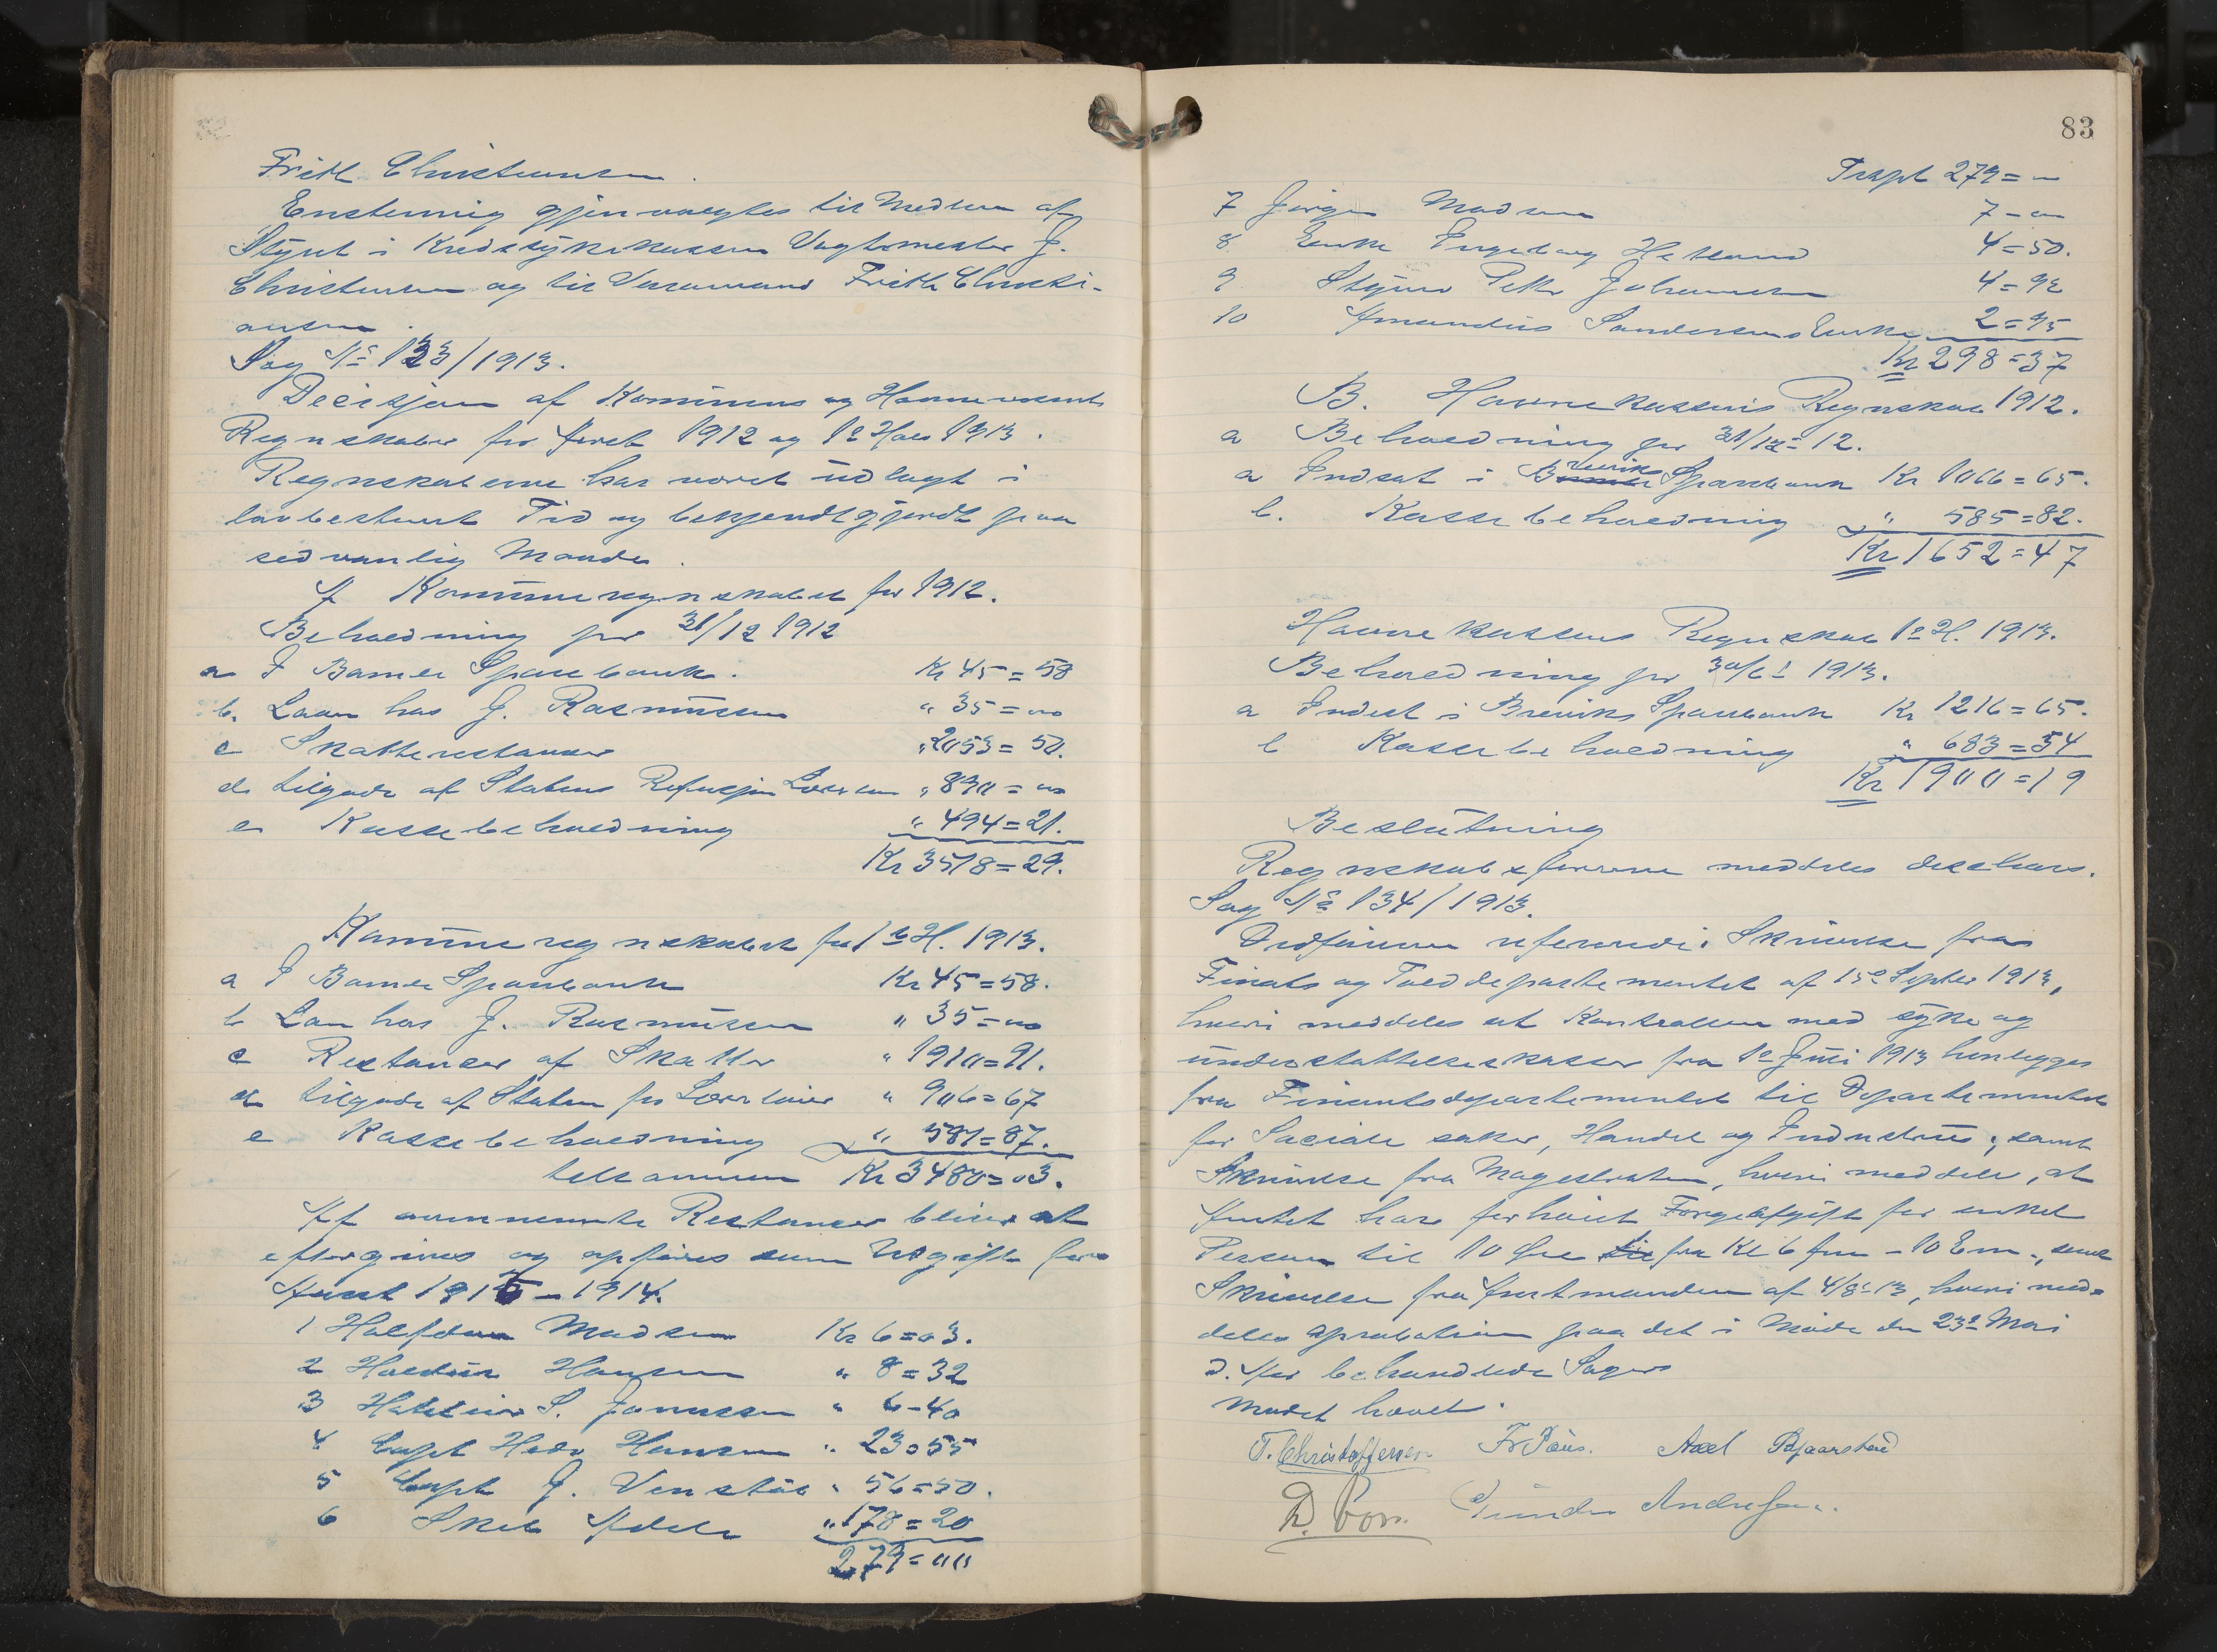 Fritk Christiansen.
Enstemig gjenvalgtes til Medlem af
Styret i Kredssykekassen Vagtmester J.
Christensen og til Varamand Fritk Christi-
ansen.
Sag No 133/1913.
Decisjon af Kommune og Havnevæsenets
Regnskaber for Aaret 1912 og 1ste Halv 1913.
Regnskaberne har været udlagt i
lovbestemt Tid og bekjendtgjordt paa
sedvanlig Maade.
A Kommuneregnskabet for 1912.
Beholdning pr 31/12 1912
a I Bamle Sparebank. Kr 45=58
b. Laan hos J. Rasmussen " 35=00
c Skatterestancer " 2053=50.
d. tilgode af Statens Refusjon " 890=00
e Kassebeholdning " 494=21.
Kr 3518=29.
Kommuneregnskabet for 1ste H. 1913.
a I Bamle Sparebank Kr 45=58.
b Laan hos J. Rasmussen " 35=00
c Restancer af Skatter " 1910=91.
d tilgode af Staten for " 906=67
e Kassebeholdning " 581=87.
tilsammen Kr 3480=03.
Af ovennevnte Restancer bliver at
eftergives og opføres som Udgift for
Aaret 1913-1914.
1 Halfdan Madsen Kr 6=03.
2 Hansen " 8=32
3 S. " 6-40
4 Capt Hansen " 23=55
5 Capt J. Venstøb " 56=50.
6 Skib Adele " 178=20
279=00
83
Trspt 279=00
7 Jørgen Madsen 7-00
8 Enke Ingeborg Hetland 4=50.
9 Styrm Petter Johannesen 4=92
10 Amandus Sandersens Enke 2=95
Kr 298=37
B. Havnekassens Regnskab 1912.
a Beholdning pr 31/12-12.
a Indsat i Breviks Sparebank Kr 1066=65.
b. Kassebeholdning " 585=82.
Kr 1652=47
Havnekassens Regnskab 1ste H. 1913.
Beholdning pr 30/6 1913.
a Indsat i Breviks Sparebank Kr 1216=65.
b Kassebeholdning " 683=54
Kr 1900=19
Beslutning
Regnskabsførerne meddeles decharge.
Sag No 134/1913.
Ordføreren refererede: Skrivelse fra
Finants og Tolddepartementet af 15de Septbr 1913,
hvori meddeles at Kontrollen med syke og
understøttelseskasser fra 1ste Juni 1913 henlegges
fra Finantsdepartementet til Departementet
for Sociale saker, Handel og Industri; samt
Skrivelse fra Magistraten, hvori meddeles, at
Amtet har forhøiet Færgeafgift for enkel
Person til 10 Øre fra Kl 6 fm - 10 Em., samt
Skrivelse fra Amtmanden af 4/8-13, hvori med-
deles approbation paa det i Møde den 23de Mai
d. Aar behandlede Sager
Mødet hævet.
T. Christoffersen. Fr Paus. Axel
Gunder Andresen.